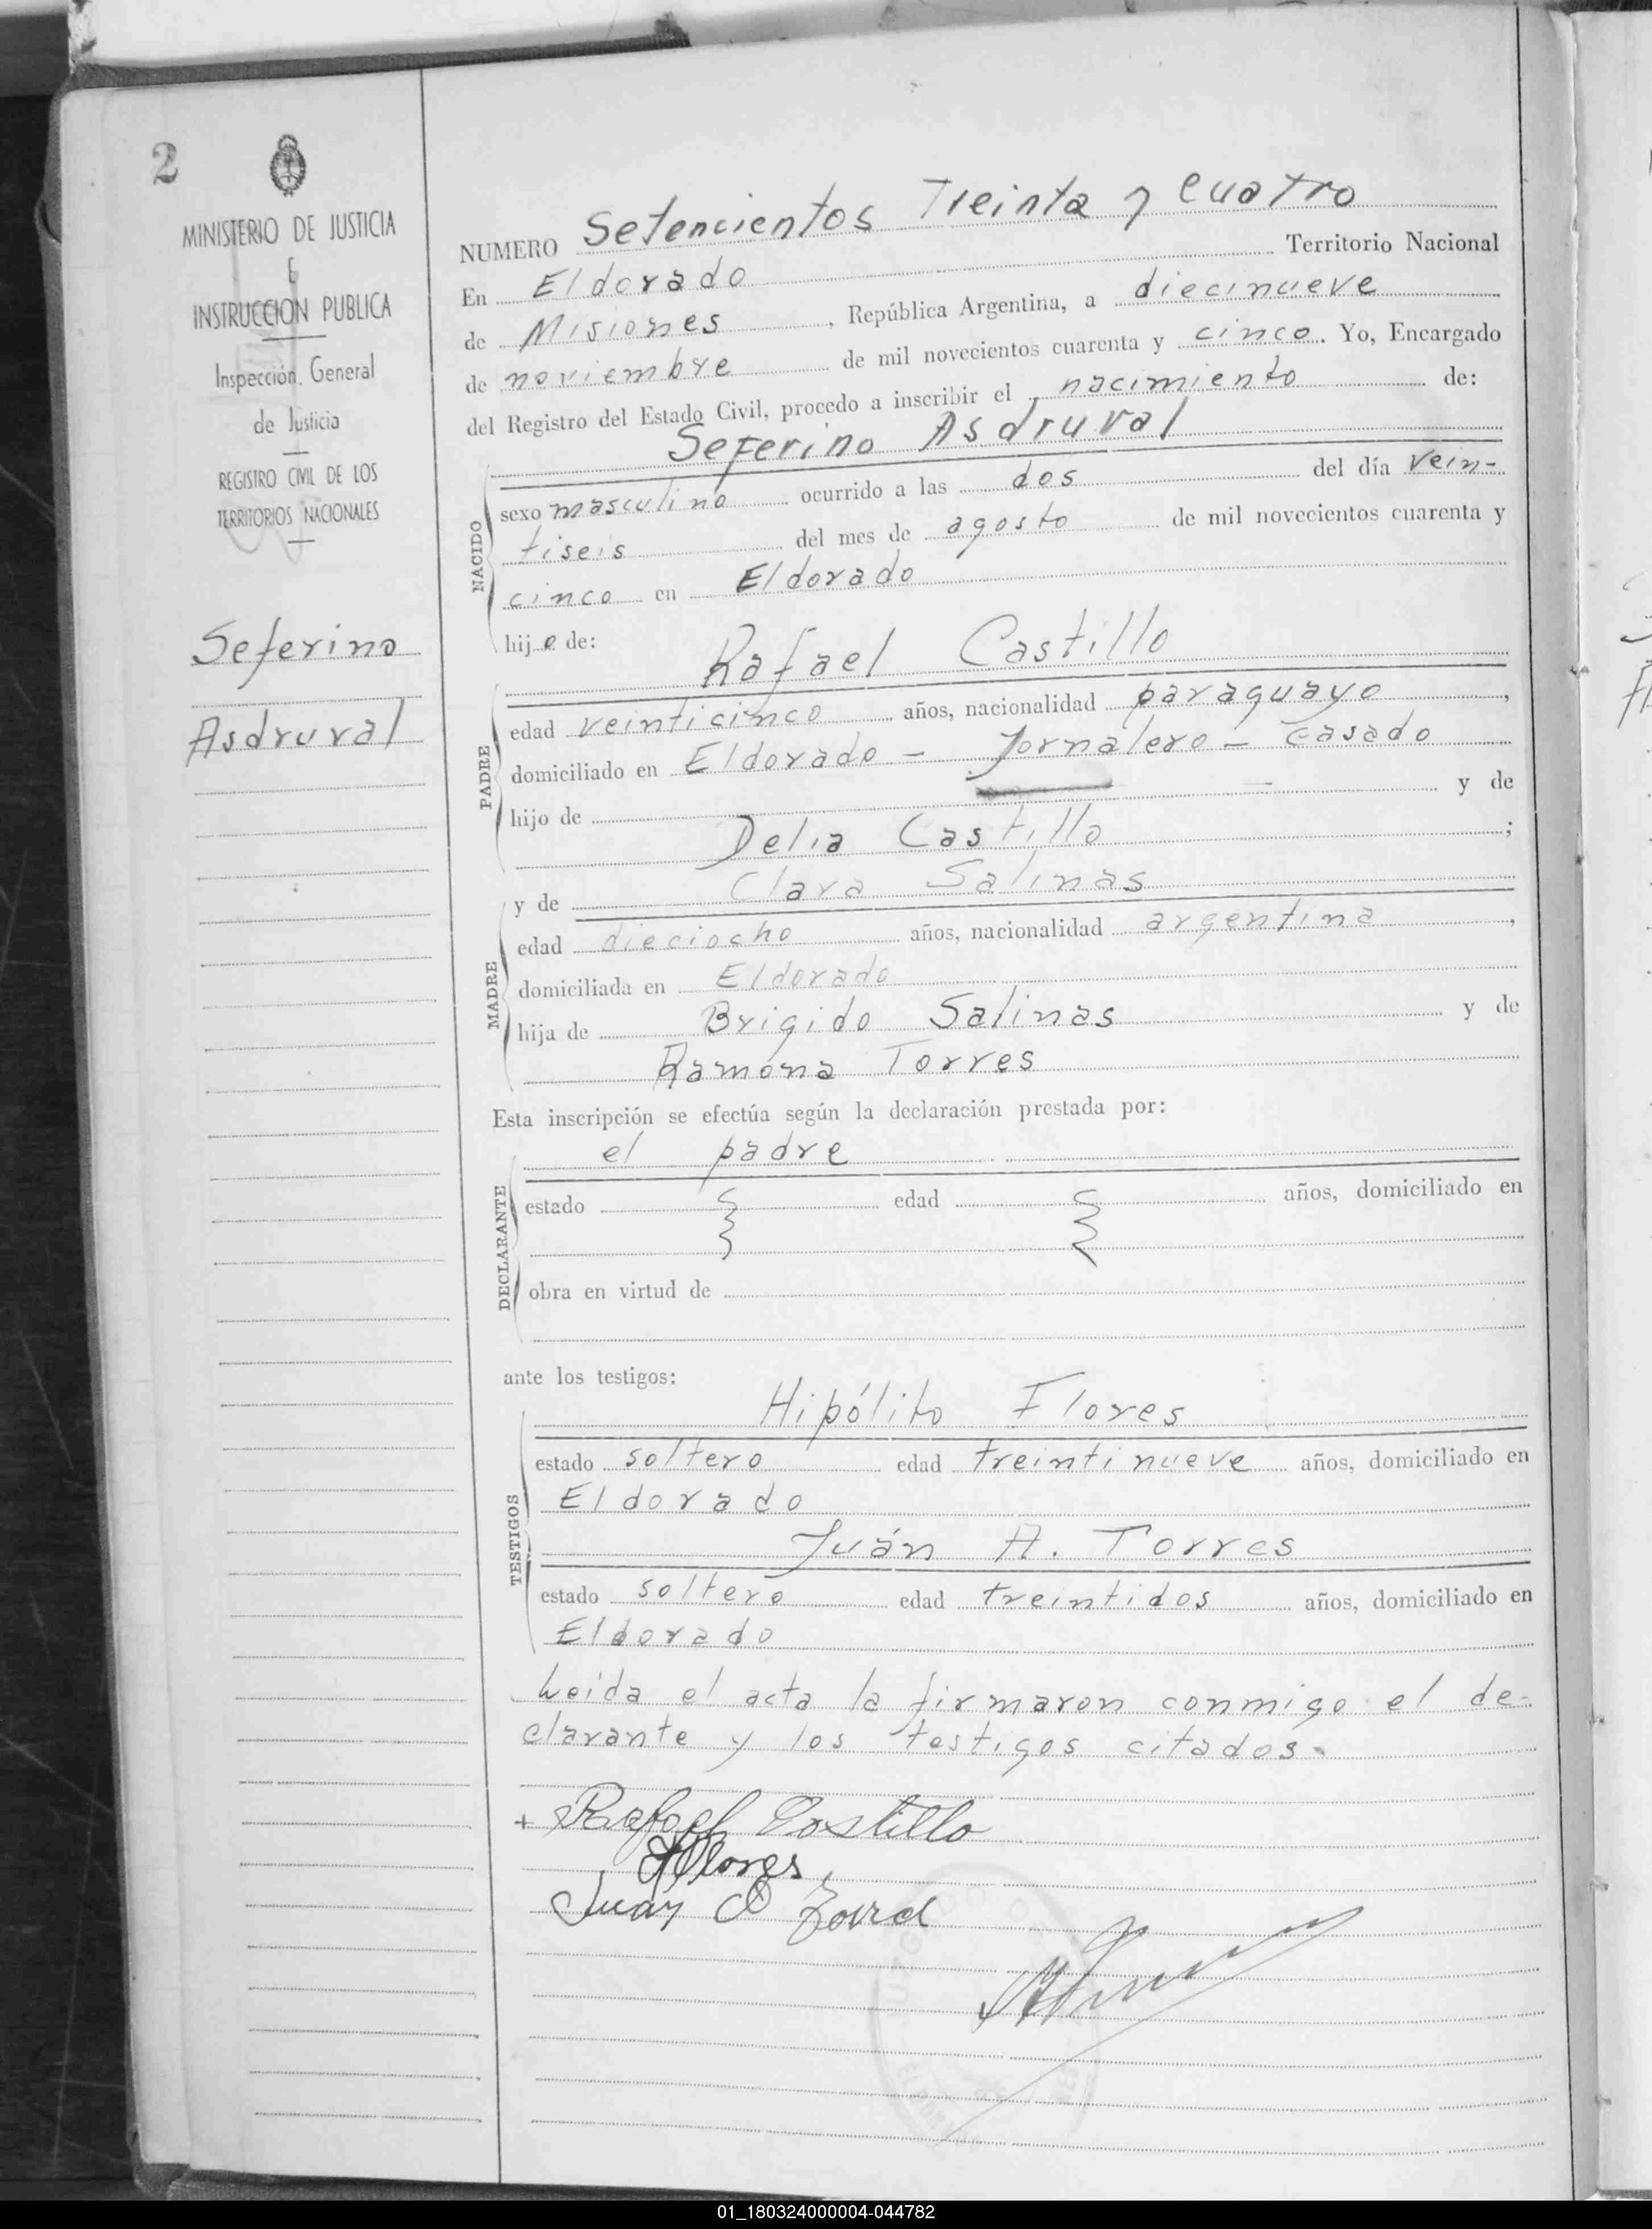 2
MINISTERIO DE JUSTICIA
E
INSTRUCCION PUBLICA
Inspección General
de Justicia
REGISTRO CIVIL DE LOS
TERRITORIOS NACIONALES
Seferino
Asdruval
NUMERO Setencientos Treinta y cuatro
En Eldorado Territorio Nacional
de Misiones, República Argentina, a diecinueve
de noviembre de mil novecientos cuarenta y cinco. Yo, Encargado
del Registro del Estado Civil, procedo a inscribir el nacimiento de:
Seferino Asdruval
NACIDO
sexo masculino ocurrido a las dos del día vein-
tiseis del mes de agosto de mil novecientos cuarenta y
cinco en Eldorado
hijo de:
Rafael Castillo
PADRE
edad veinticinco años, nacionalidad paraguayo,
domiciliado en Eldorado - Jornalero - Casado
hijo de y de
Delia Castillo;
y de Clara Salinas
MADRE
edad dieciocho años, nacionalidad argentina,
domiciliada en Eldorado
hija de Brigido Salinas y de
Ramona Torres
Esta inscripción se efectúa según la declaración prestada por:
el padre
DECLARANTE
estado edad años, domiciliado en
obra en virtud de
ante los testigos:
Hipólito Flores
TESTIGOS
estado soltero edad treintinueve años, domiciliado en
Eldorado
Juán A. Torres
estado soltero edad treintidos años, domiciliado en
Eldorado
Leida el acta la firmaron conmigo el de-
clarante y los testigos citados.
+ Rafael Castillo
HFlores
Juan A
01_180324000004-044782